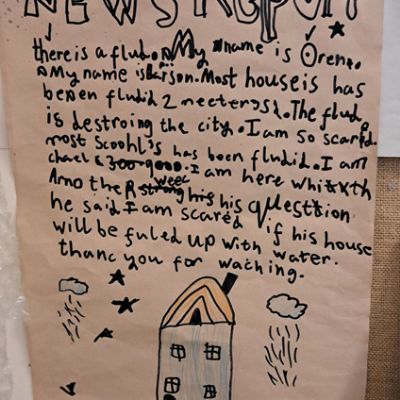 NEWS REPORT
there is a flud. My name is Oren.
My name is Larson. Most house is has
been fludid 2 meeters. The flud
is destroing the city. I am so scared.
most Scoohl's has been fludid. I am
I am here with
weec
Amo the his question
he said I am scared if his house
will be fuled up with water.
thanc you for waching.